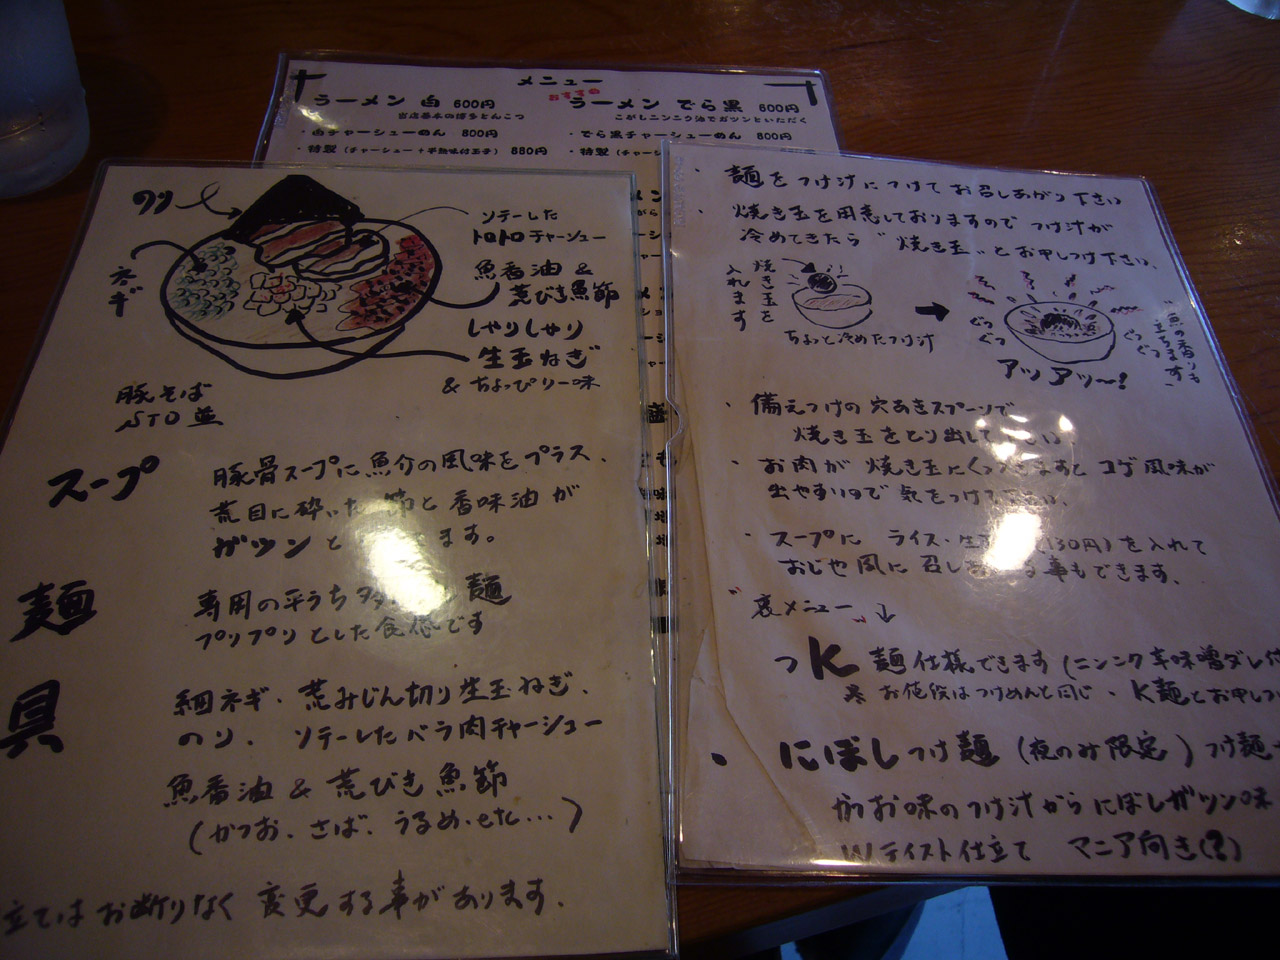 メニュー
ラーメン 白 600円
当店基本の博多とんこつ
・白チャーシューめん 800円
・特製(チャーシュー+半熟味付玉子) 880円
おすすめ
ラーメン でら黒 600円
こがしニンニク油でガツンといただく
・でら黒チャーシューめん 800円
・特製(チャーシ
ノリ
ネギ
ソテーした
トロトロチャーシュー
魚香油&
荒びき魚節
しゃりしゃり
生玉ねぎ
&ちょっぴり一味
豚そば
STD 並
スープ
豚骨スープに魚介の風味をプラス、
荒目に砕いた 節と香味油が
ガツンと ます。
麺
専用の平うち 麺
プリプリとした食感です
具
細ネギ、荒みじん切り生玉ねぎ、
のり、ソテーしたバラ肉チャーシュー
魚香油&荒びき魚節
(かつお、さば、うるめ、etc...)
立てはお断りなく変更する事があります.
・麺をつけ汁につけてお召しあがり下さい
・焼き玉を用意しておりますのでつけ汁が
冷めてきたら"焼き玉"とお申しつけ下さい、
焼き玉を
入れます
ちょっと冷めたつけ汁
ぐつ
ぐつ
アッアッ〜!
ぐつ
ぐつ
"魚の香りも
立ちます"
・備えつけの穴あきスプーンで
焼き玉をとり出して 下さい、
・お肉が焼き玉にくっつきますとコゲ風味が
出やすいので気をつけて下さい、
・スープにライス・生 (130円)を入れて
おじや風に召しあがる事もできます、
"裏メニュー"↓
つK麺仕様できます(ニンニク辛味噌ダレ付
お値段はつけめんと同じ、K麺とお申しつ
・にぼしつけ麺(夜のみ限定)つけ麺
がお味のつけ汁からにぼしガツン味
Wテイスト仕立て マニア向き(?)